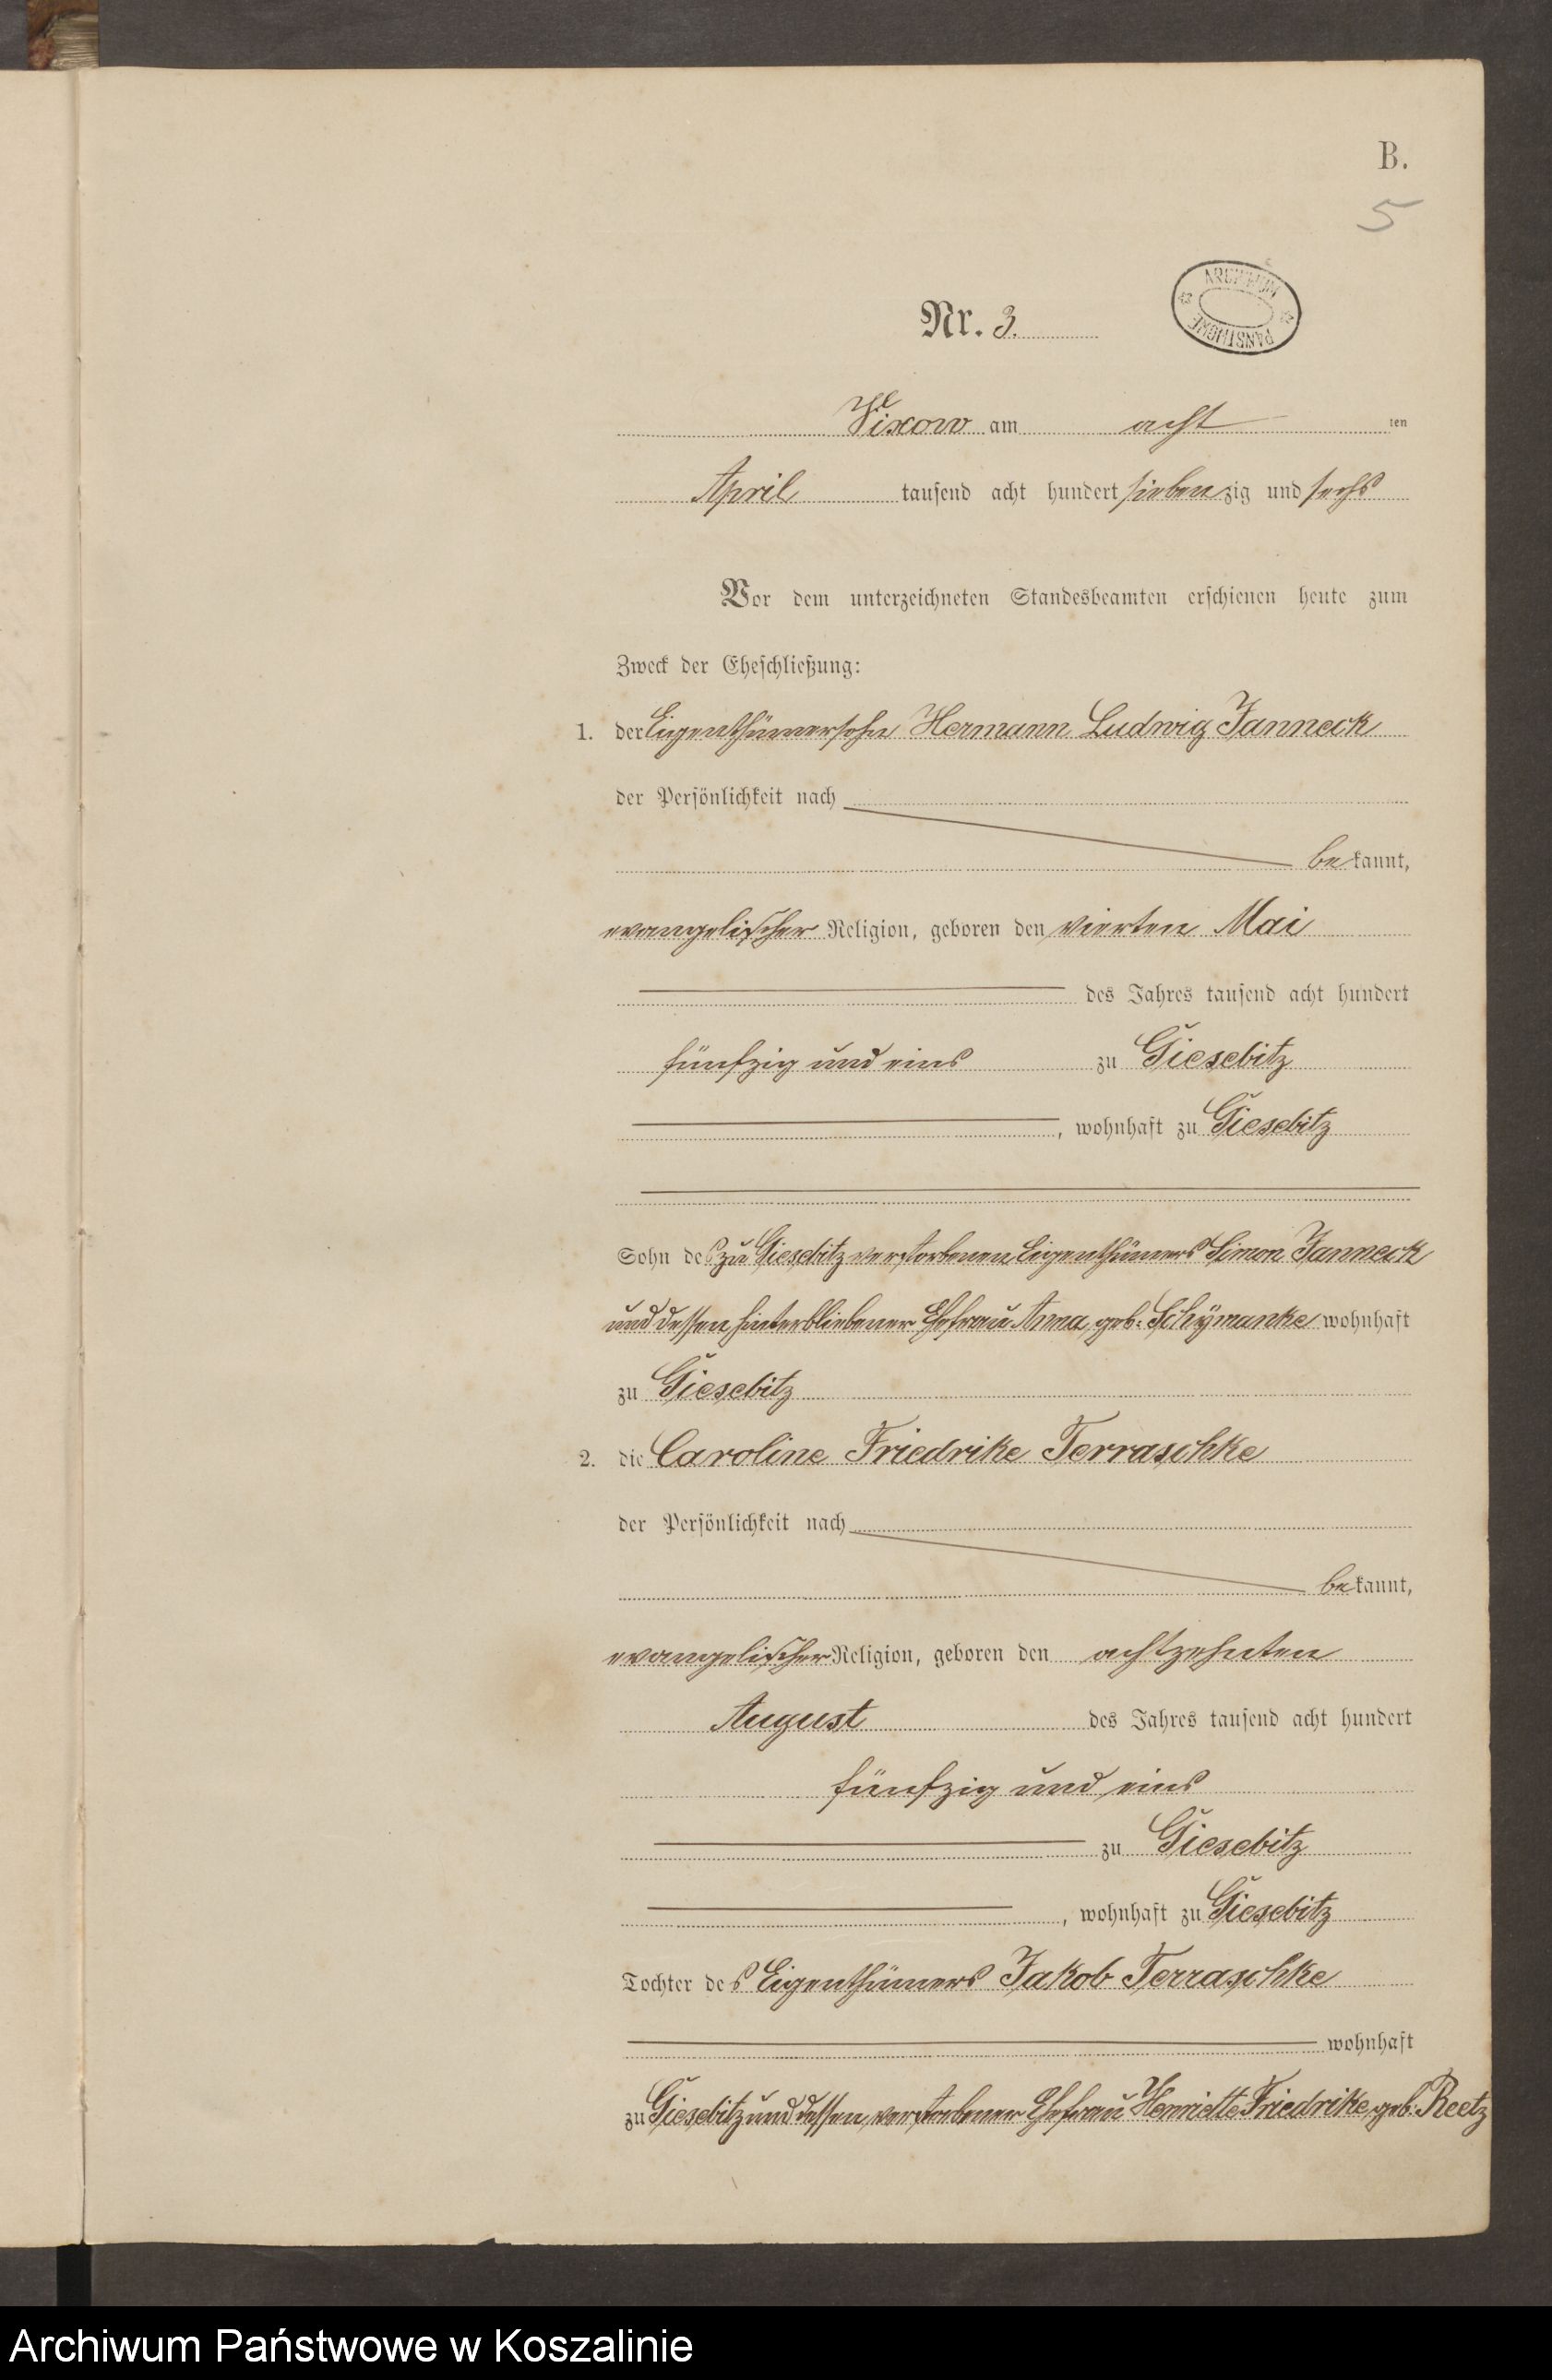 B.
5
ARCHIWUM PAŃSTWOWE
Nr. 3.
Vixow am acht ten
April tausend acht hundert siebenzig und sechs
Vor dem unterzeichneten Standesbeamten erschienen heute zum
Zweck der Eheschließung:
1. der Eigenthümersohn Hermann Ludwig Janneck
der Persönlichkeit nach
bekannt,
evangelischer Religion, geboren den vierten Mai
des Jahres tausend acht hundert
fünfzig und eins zu Giesebitz
, wohnhaft zu Giesebitz
Sohn des zu Giesebitz verstorbenen Eigenthümers Simon Janneck
und dessen hinterbliebener Ehefrau Anna geb. Schÿmanke wohnhaft
zu Giesebitz
2. die Caroline Friedrike Terraschke
der Persönlichkeit nach
bekannt,
evangelischer Religion, geboren den achtzehnten
August des Jahres tausend acht hundert
fünfzig und eins
zu Giesebitz
, wohnhaft zu Giesebitz
Tochter des Eigenthümers Jakob Terraschke
wohnhaft
zu Giesebitz und dessen verstorbener Ehefrau Henriette Friedrike geb. Reetz
Archiwum Państwowe w Koszalinie